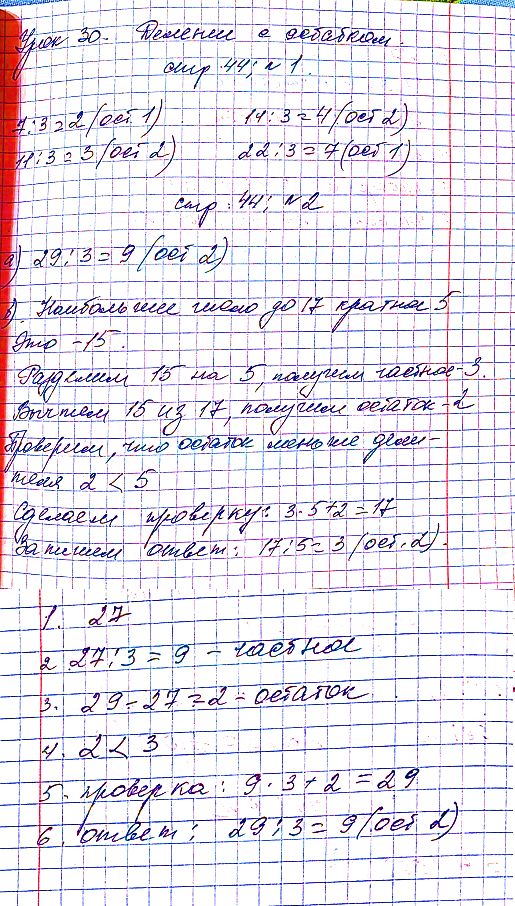 Урок 30. Деление с остатком.
стр 44; №1.
7:3=2(ост 1) 14:3=4(ост 2)
11:3=3(ост 2) 22:3=7(ост 1)
стр. 44; №2
а) 29:3=9(ост 2)
в) Наибольшее число до 17 кратное 5
Это -15.
Разделим 15 на 5, получим частное-3.
Вычтем 15 из 17, получим остаток-2
Проверим, что остаток меньше дели-
теля 2<5
Сделаем проверку: 3·5+2=17
Запишем ответ: 17:5=3(ост.2).
1. 27
2. 27:3=9 - частное
3. 29-27=2-остаток
4. 2<3
5. проверка: 9·3+2=29
6. ответ: 29:3=9(ост 2)